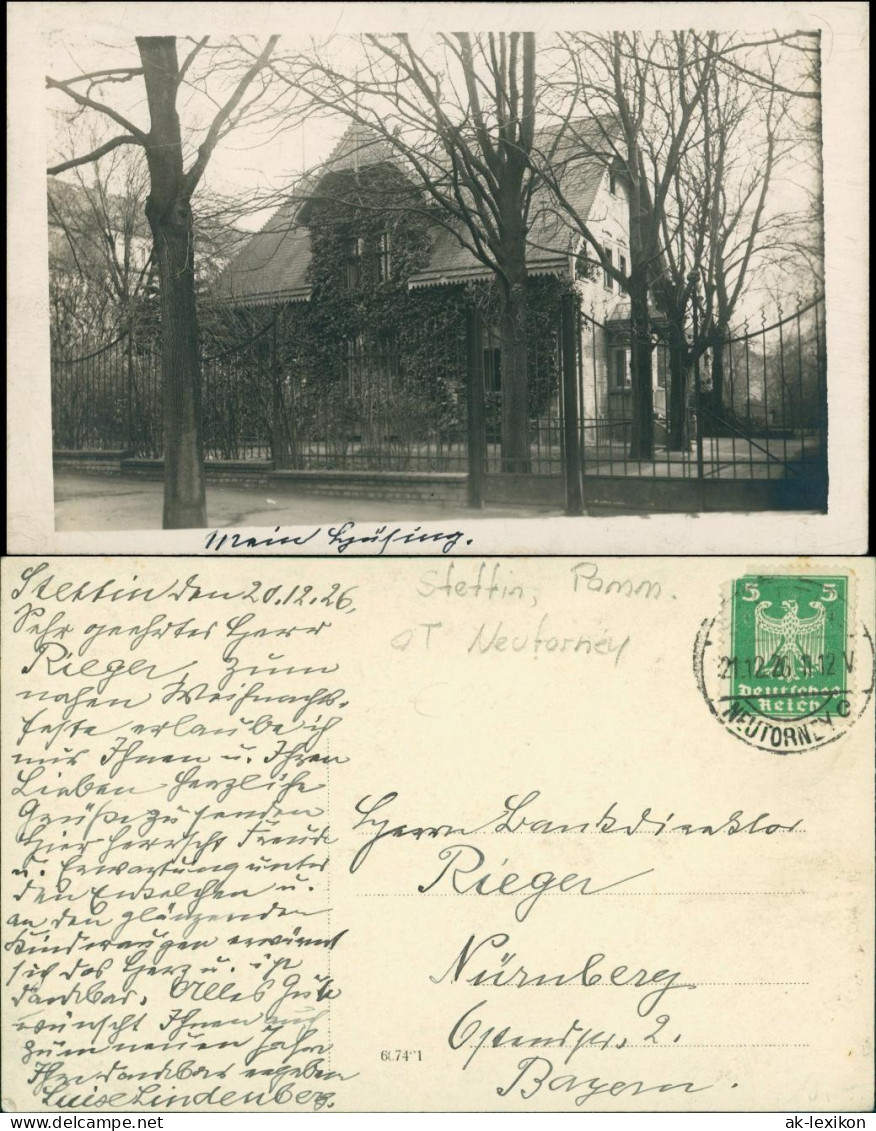 Mein Häusing.
Stettin den 20.12.26.
Sehr geehrter Herr
Rieger, zum
nahen Weihnachts-
feste erlaube ich
mir Ihnen u. Ihren
Lieben herzliche
Grüße zu senden
Hier herrscht Freude
u. Erwartung unter
den Enkelchen u.
an den glänzenden
Kinderaugen erwärmt
sich das Herz u. ist
dankbar. Alles Gute
wünscht Ihnen auch
zum neuen Jahre
Ihre dankbar ergebene
Luise Lindenberg.
Stettin, Pomm.
OT Neutorney
5 5
Deutsches
Reich
21.12.26.11-12 V
NEUTORNEY C
Herrn Bankdirektor
Rieger
Nürnberg
Ostendstr. 2.
Bayern.
delcampe.net
ak-lexikon